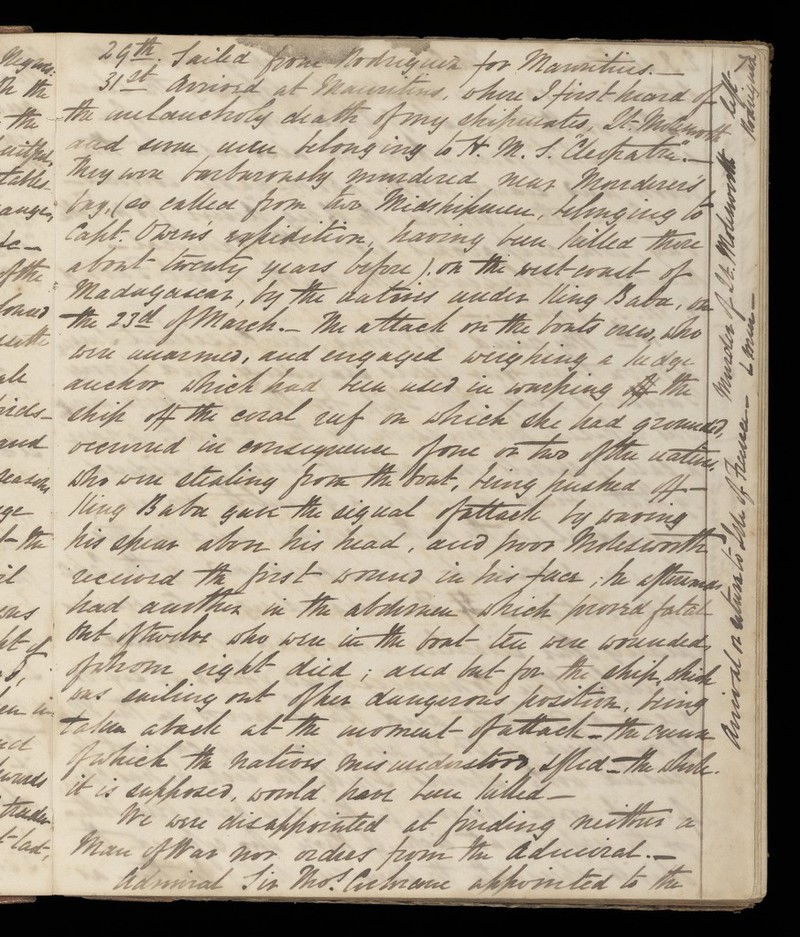 29th. Sailed from Rodriguez for Mauritius. —
31st Arrived at Mauritius, where I first heard of
the melancholy death of my shipmates, Lt. Molesworth
and seven men belonging to H. M. S. Cleopatra". —
They were barbarously murdered near Murderer's
bay, (so called from two Midshipmen, belonging to
Capt. Owen's expedition, having been killed there
about twenty years before), on the west coast of
Madagascar, by the natives under King Baba, on
the 23d of March. — The attack on the boats crew, who
were unarmed, and engaged weighing a kedge
anchor which had been used in warping off the
ship off the coral reef on which she had grounded,
occurred in consequence of one or two of the natives,
who were stealing from the boat, being pushed off —
King Baba gave the signal of attack by waving
his spear above his head, and poor Molesworth
received the first wound in his face; he afterwards
had another in the abdomen which proved fatal
Out of twelve who were in the boat ten were wounded,
of whom eight died; and but for the ship, which
was sailing out of her dangerous position, being
taken aback at the moment of attack — the cause
of which the natives misunderstood, & fled — the whole,
it is supposed, would have been killed —
We were disappointed at finding neither a
Man of War nor orders from the Admiral. —
Admiral Sir Thos. Cochrane appointed to the
7
left Rodriguez
Murder of Lt. Molesworth & men —
Arrival on return to Isle of France —
Negroes
the
the
tables
of the
found
and
season
the
was
of
towards
trader
last,